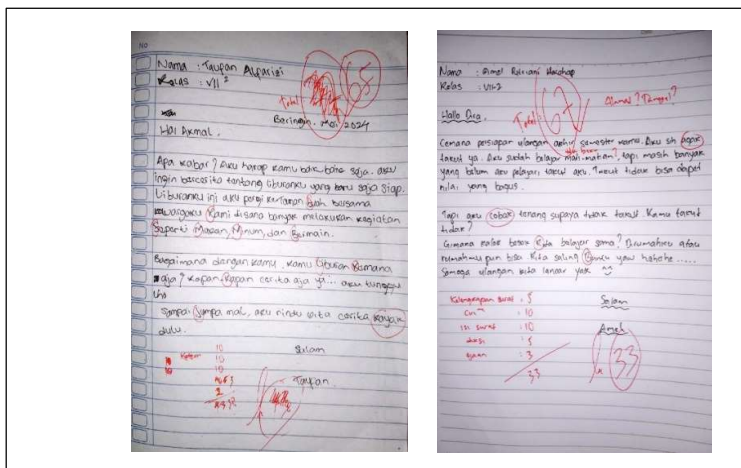 NO
Nama : Taupan Alparizi
Kelas : VII²
Total
65
Beringin, Mei 2024
Hai Akmal,
Apa kabar? Aku harap kamu baik baik saja. aku
ingin bercerita tentang liburanku yang baru saja siap.
Liburanku ini aku pergi ke taman bersama
keluargaku Kami disana banyak melakukan kegiatan
Seperti Makan, Minum, dan Bermain.
Bagaimana dengan kamu, kamu Liburan Kemana
aja? kapan Kapan cerita aja ya... aku tunggu
lho
Sampai Jumpa mal, aku rindu kita cerita kayak
dulu.
10
10
10
Salam
Taupan
Nama :
Kelas : VII-2
Total :
67
Alamat? Tanggal?
Hallo Dea,
Cemana persiapan ulangan akhir semester kamu. Aku sh agak
takut ya. Aku sudah belajar mati-matian, tapi masih banyak
yang belum aku pelajari, takut aku. Takut tidak bisa dapat
nilai yang bagus.
Tapi aku cobak tenang supaya tidak takut. Kamu takut
tidak?
Gimana kalok besok Kita belajar sama? Dirumahku atau
rumahmu pun bisa Kita saling Bantu yaw hehehe......
Semoga ulangan kita lancar yak
Kelengkapan surat : 5
: 10
isi surat : 10
: 5
ejaan : 3
33
Salam
33